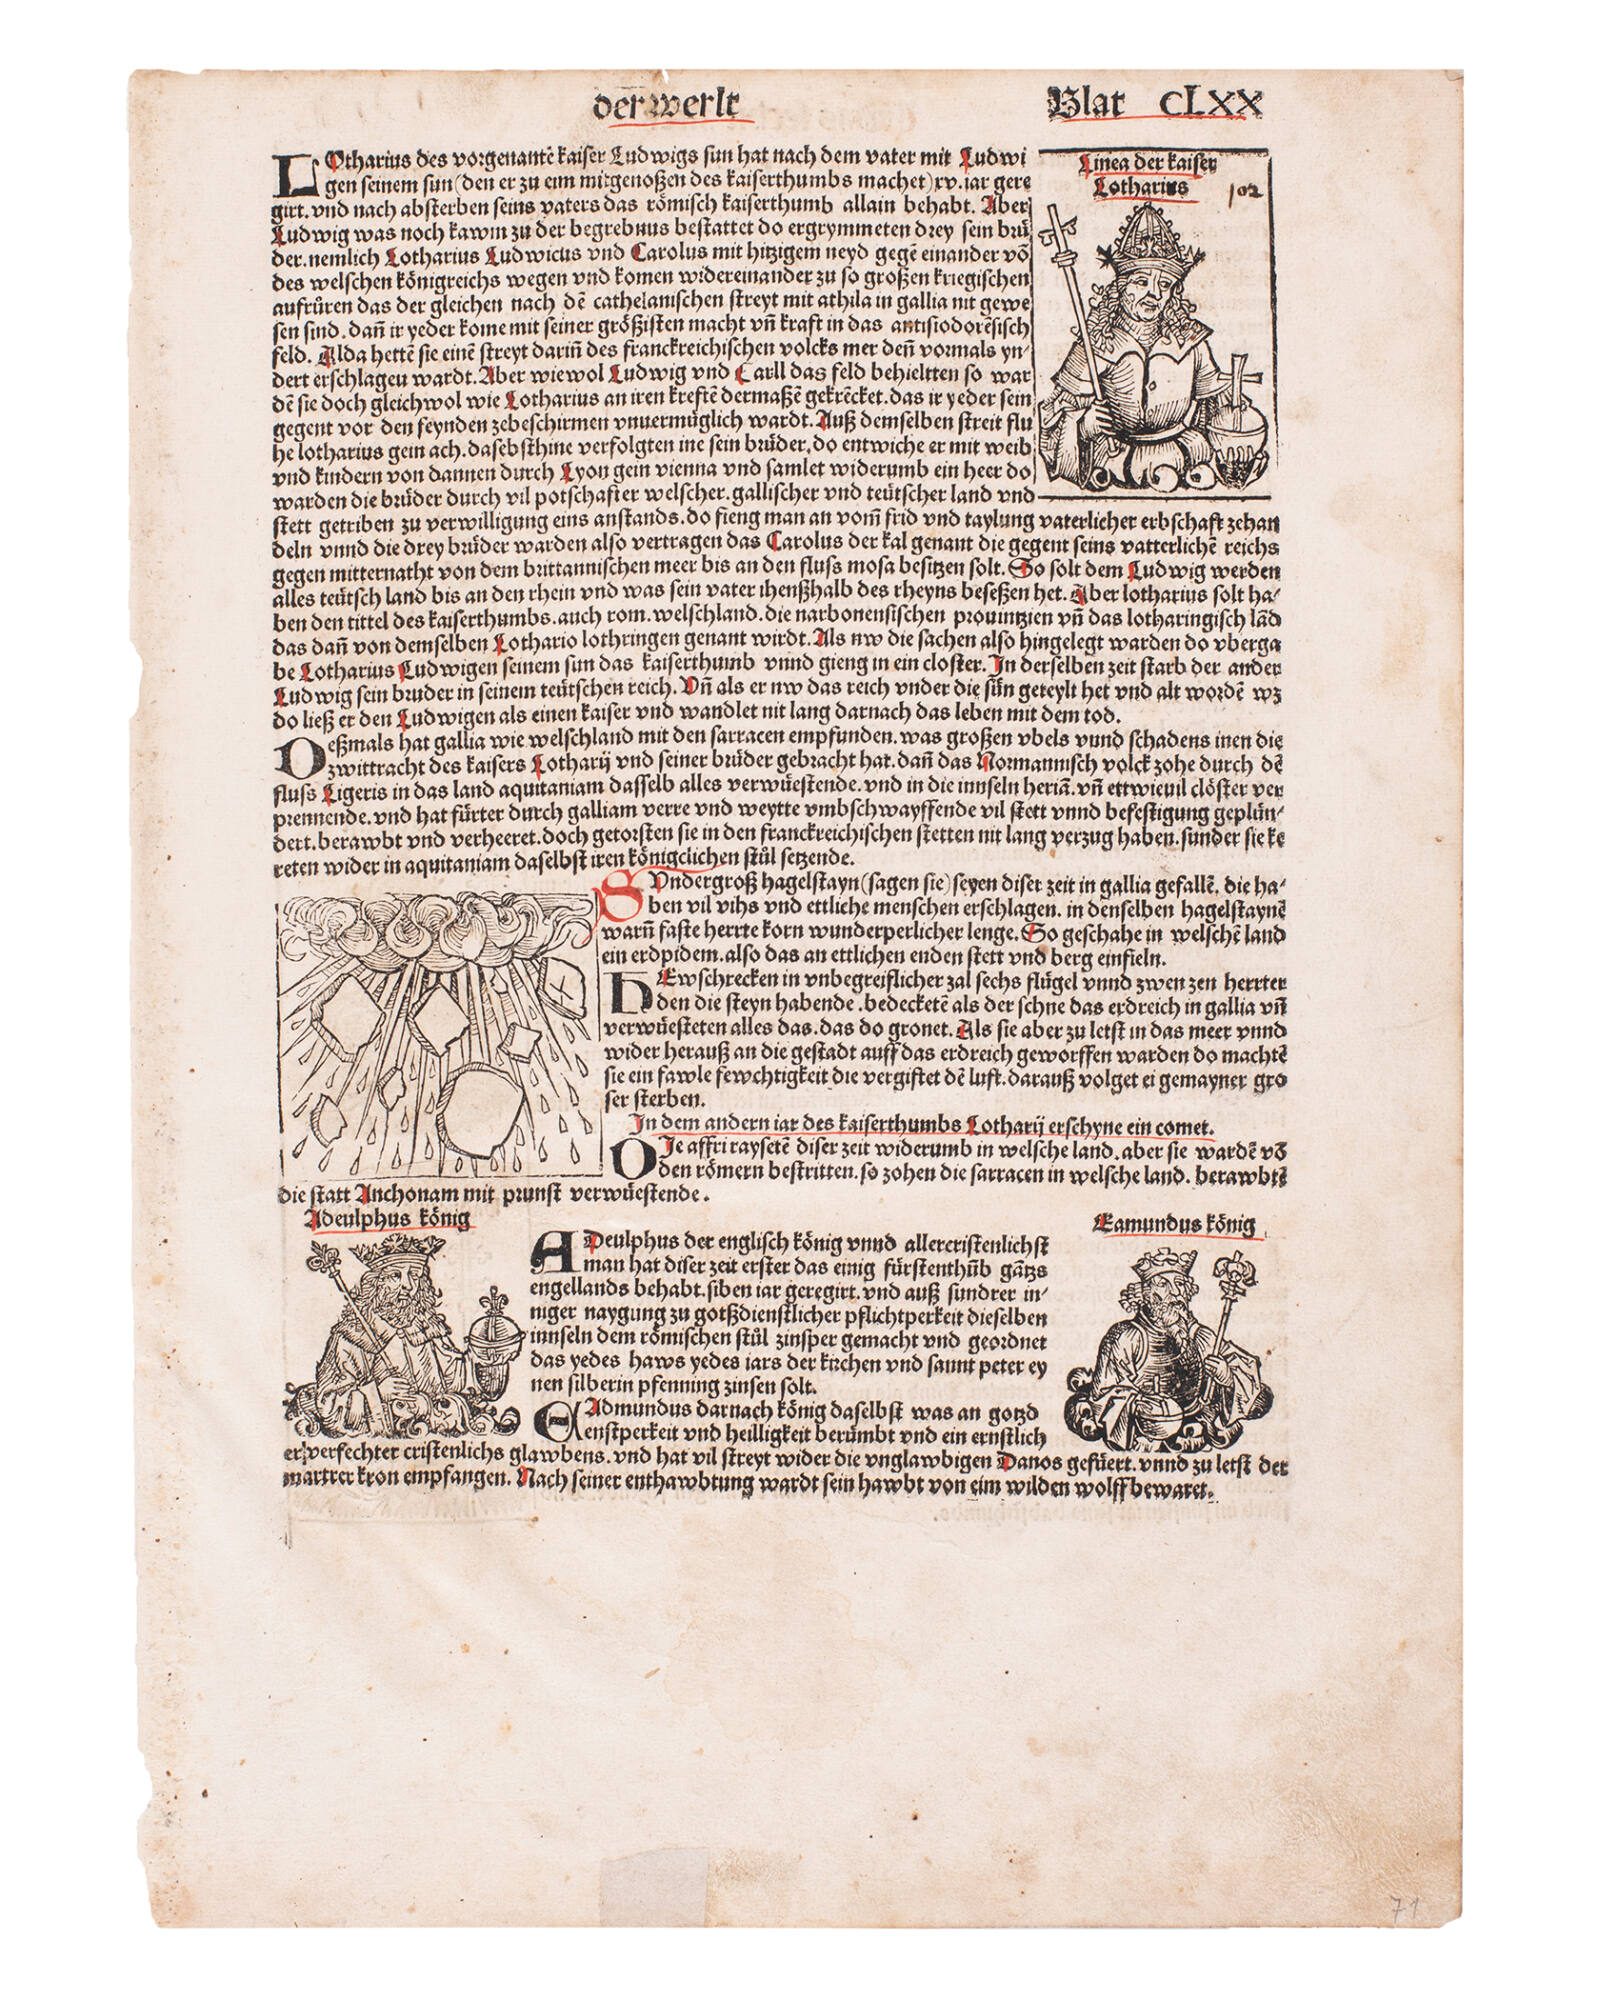 der werlt
Blat CLXX
Linea der kaiser
Lotharius
102
LOtharius des vorgenantē kaiser Ludwigs sun hat nach dem vater mit Ludwi
gen seinem sun (den er zu eim mitgenoßen des kaiserthumbs machet) xv. iar gere
girt. vnd nach absterben seins vaters das römisch kaiserthumb allain behabt. Aber
Ludwig was noch kawm zu der begrebnus bestattet do ergrymmeten drey sein brü
der. nemlich Lotharius Ludwicus vnd Carolus mit hitzigem neyd gegē einander vō
des welschen königreichs wegen vnd komen widereinander zu so großen kriegischen
aufrůren das der gleichen nach dē cathelanischen streyt mit athila in gallia nit gewe
sen sind. dañ ir yeder kome mit seiner größisten macht vñ kraft in das antisiodorēsisch
feld. Alda hettē sie einē streyt dariñ des franckreichischen volcks mer deñ vormals yn-
dert erschlagen wardt. Aber wiewol Ludwig vnd Carll das feld behieltten so war
dē sie doch gleichwol wie Lotharius an iren kreftē dermaßē gekrēcket. das ir yeder sein
gegent vor den feynden zebeschirmen vnuermüglich wardt. Auß demselben streit flu
he lotharius gein ach. dasebsthine verfolgten ine sein brüder. do entwiche er mit weib
vnd kindern von dannen durch Lyon gein vienna vnd samlet widerumb ein heer do
warden die brüder durch vil potschafter welscher. gallischer vnd teütscher land vnd
stett getriben zu verwilligung eins anstands. do fieng man an vom̄ frid vnd taylung vaterlicher erbschaft zehan
deln vnnd die drey brüder warden also vertragen das Carolus der kal genant die gegent seins vatterlichē reichs
gegen mitternatht von dem brittannischen meer bis an den fluss mosa besitzen solt. So solt dem Ludwig werden
alles teütsch land bis an den rhein vnd was sein vater ihenßhalb des rheyns beseßen het. Aber lotharius solt ha-
ben den tittel des kaiserthumbs. auch rom. welschland. die narbonensischen prouintzien vñ das lotharingisch lād
das dañ von demselben Lothario lothringen genant wirdt. Als nw die sachen also hingelegt warden do vberga
be Lotharius Ludwigen seinem sun das kaiserthumb vnnd gieng in ein closter. In derselben zeit starb der ander
Ludwig sein bruder in seinem teütschen reich. Vñ als er nw das reich vnder die sün geteylt het vnd alt wordē wz
do ließ er den Ludwigen als einen kaiser vnd wandlet nit lang darnach das leben mit dem tod.
DEßmals hat gallia wie welschland mit den sarracen empfunden. was großen vbels vnnd schadens inen die
zwittracht des kaisers Lotharij vnd seiner brüder gebracht hat. dañ das Normannisch volck zohe durch dē
fluss Ligeris in das land aquitaniam dasselb alles verwüestende. vnd in die innseln heriā. vñ ettwieuil clöster ver
prennende. vnd hat fürter durch galliam verre vnd weytte vmbschwayffende vil stett vnnd befestigung geplün-
dert. berawbt vnd verheeret. doch getorsten sie in den franckreichischen stetten nit lang verzug haben. sunder sie ke
reten wider in aquitaniam daselbst iren königclichen stůl setzende.
SVndergroß hagelstayn (sagen sie) seyen diser zeit in gallia gefallē. die ha-
ben vil vihs vnd ettliche menschen erschlagen. in denselben hagelstaynē
warñ faste herrte korn wunderperlicher lenge. So geschahe in welschē land
ein erdpidem. also das an ettlichen enden stett vnd berg einfieln.
HEwschrecken in vnbegreiflicher zal sechs flügel vnnd zwen zen herrter
den die steyn habende. bedecketē als der schne das erdreich in gallia vñ
verwüesteten alles das. das do gronet. Als sie aber zu letst in das meer vnnd
wider herauß an die gestadt auff das erdreich geworffen warden do machtē
sie ein fawle fewchtigkeit die vergiftet dē luft. darauß volget ei gemayner gro
ser sterben.
In dem andern iar des kaiserthumbs Lotharij erschyne ein comet.
DIe affri raysetē diser zeit widerumb in welsche land. aber sie wardē vō
den römern bestritten. so zohen die sarracen in welsche land. berawbtē
die statt Anchonam mit prunst verwüestende.
Adeulphus könig
Eamundus könig
ADeulphus der englisch könig vnnd allercristenlichst
man hat diser zeit erster das einig fürstenthūb gātzs
engellands behabt. siben iar geregirt. vnd auß sundrer in-
niger naygung zu gotßdienstlicher pflichtperkeit dieselben
innseln dem römischen stůl zinsper gemacht vnd geordnet
das yedes haws yedes iars der kirchen vnd sannt peter ey
nen silberin pfenning zinsen solt.
EAdmundus darnach könig daselbst was an gotzd
ienstperkeit vnd heilligkeit berümbt vnd ein ernstlich
er verfechter cristenlichs glawbens. vnd hat vil streyt wider die vnglawbigen Danos gefüert. vnnd zu letst der
martrer kron empfangen. Nach seiner enthawbtung wardt sein hawbt von eim wilden wolff bewaret.
71